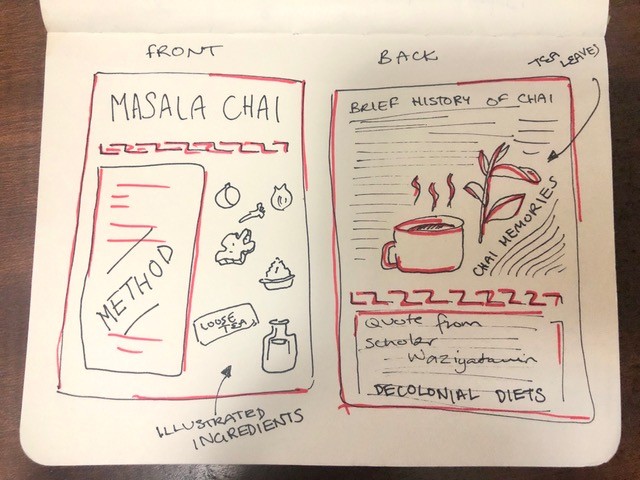 FRONT
MASALA CHAI
METHOD
LOOSE
TEA
ILLUSTRATED
INGREDIENTS
BACK
TEA
LEAVES
BRIEF HISTORY OF CHAI
CHAI MEMORIES
Quote from
scholar
Waziyatawin
DECOLONIAL DIETS